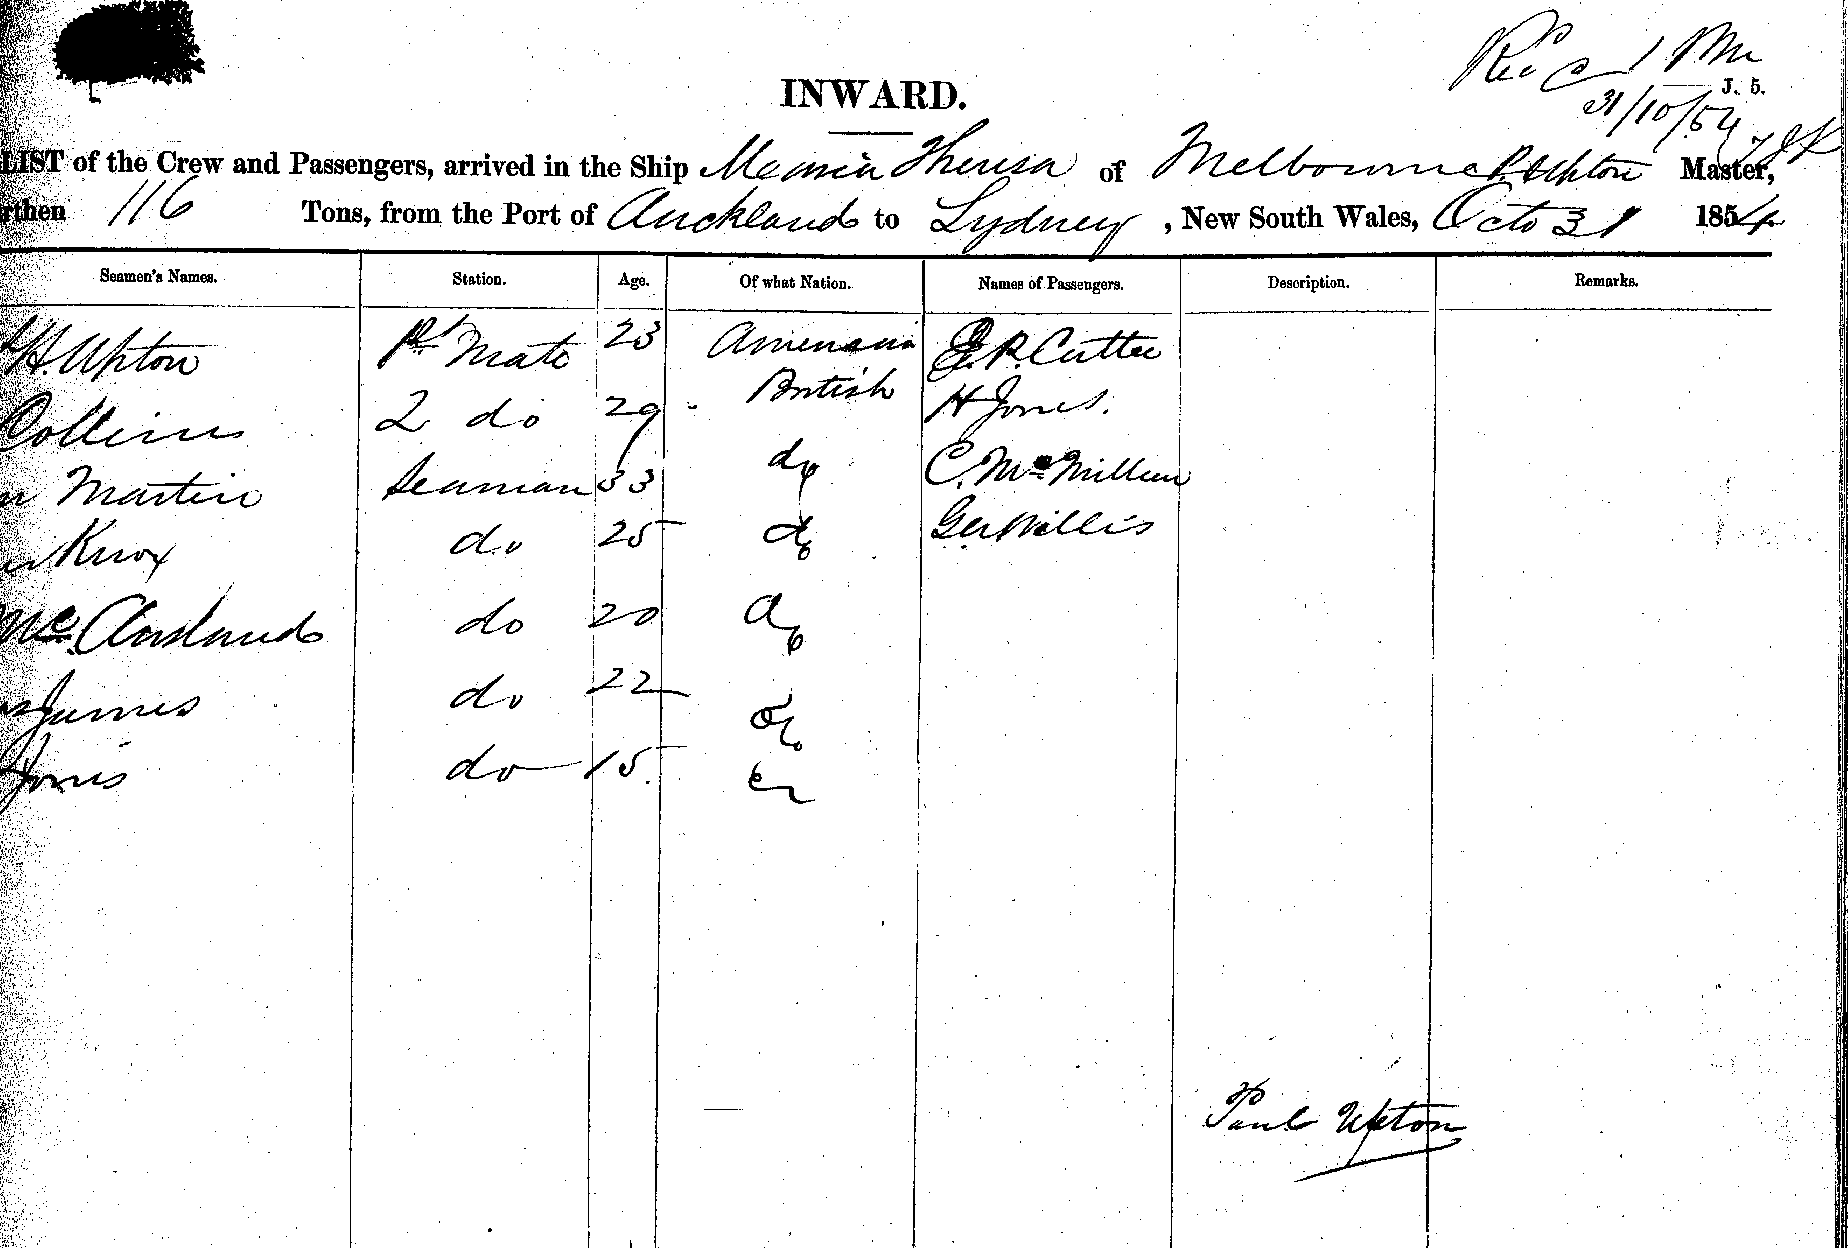 Rec'd
J. 5.
31/10/54
INWARD.
LIST of the Crew and Passengers, arrived in the Ship Maria Theresa of Melbourne P. Upton Master,
rthen 116 Tons, from the Port of Auckland to Sydney, New South Wales, Octo 31 1854
Seamen's Names. Station. Age. Of what Nation. Names of Passengers. Description. Remarks.
H. Upton 1st Mate 23 American E.R. Cutter
Collins 2 do 29 British H Jones.
Martin Seaman 33 do C. McMillan
Knox do 25 do Geo Willis
Mc Causland do 20 do
James do 22 do
Jones do 15
Paul Upton